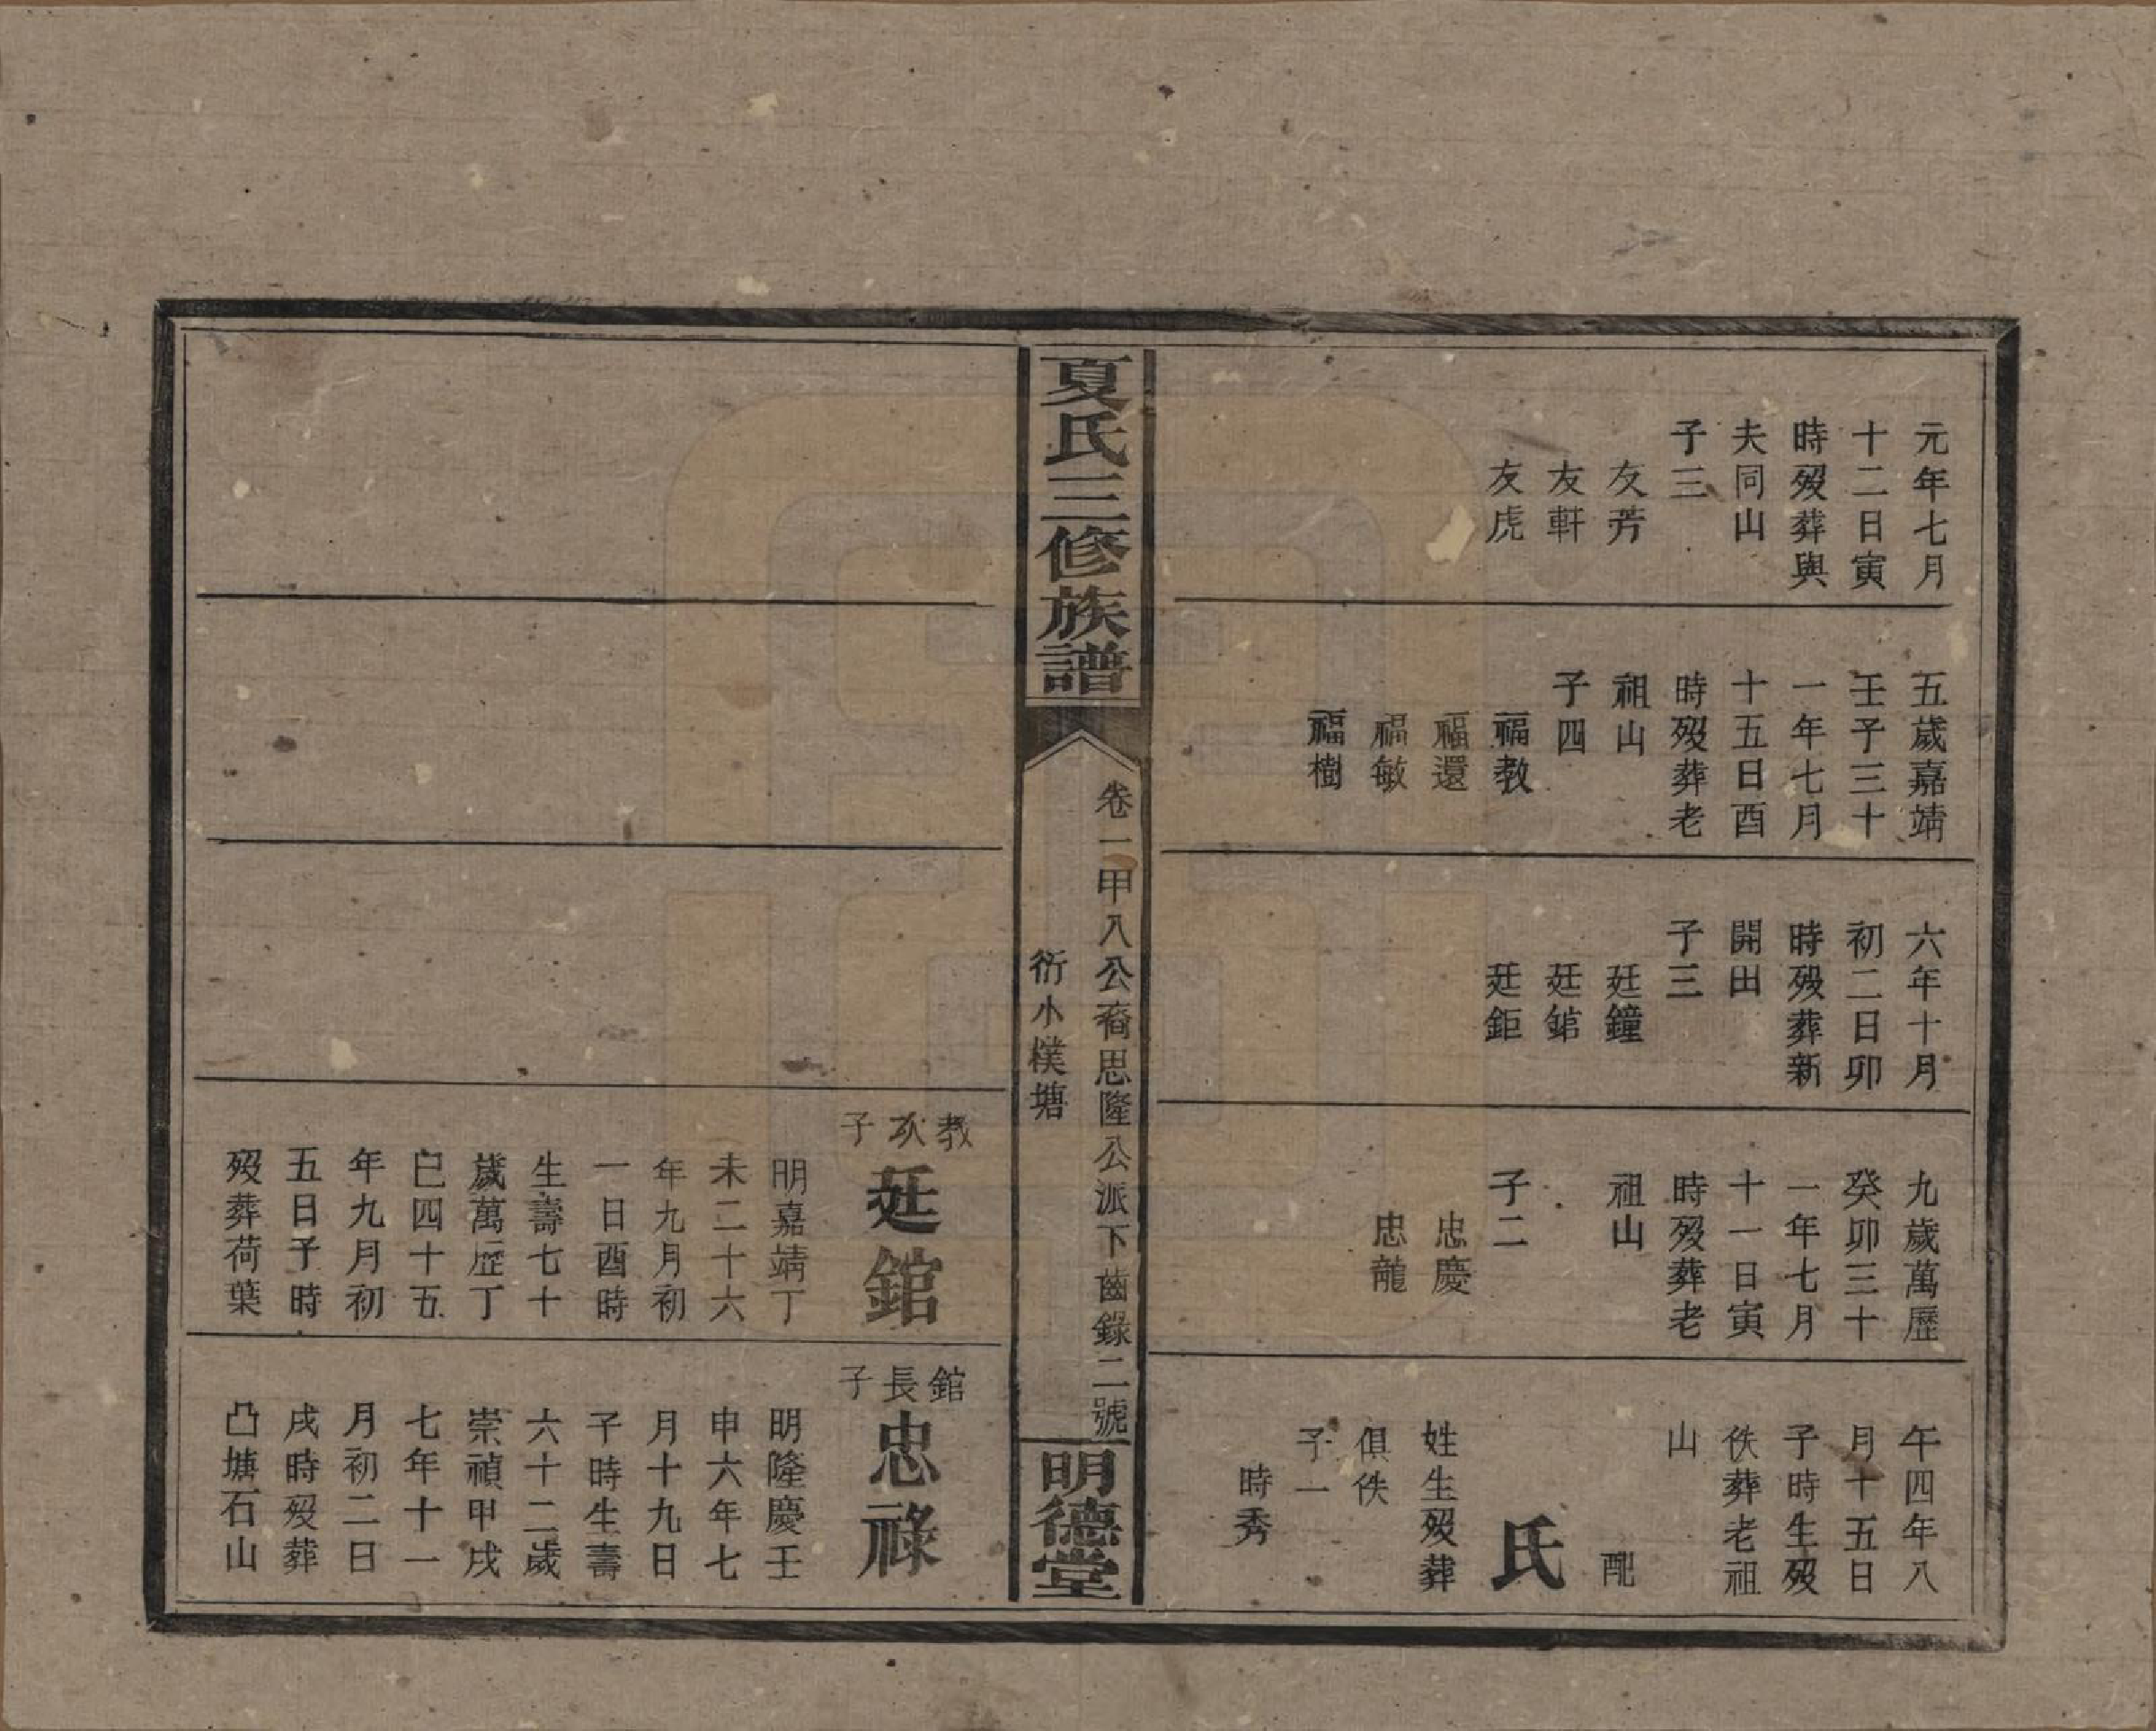 元年七月
十二日寅
時歿葬與
夫同山
子三
友芳
友軒
友虎
五歲嘉靖
壬子三十
一年七月
十五日酉
時歿葬老
祖山
子四
福教
福還
福敏
福樹
六年十月
初二日卯
時歿葬新
開田
子三
廷鐘
廷錧
廷鉅
九歲萬歷
癸卯三十
一年七月
十一日寅
時歿葬老
祖山
子二
忠慶
忠龍
午四年八
月十五日
子時生歿
佚葬老祖
山
配
氏
姓生歿葬
俱佚
子一
時秀
夏氏三修族譜
卷一甲八公裔思隆公派下齒錄二號
衍小樸塘
明德堂
教次子
廷錧
明嘉靖丁
未二十六
年九月初
一日酉時
生壽七十
歲萬歷丁
巳四十五
年九月初
五日子時
歿葬荷葉
錧長子
忠祿
明隆慶壬
申六年七
月十九日
子時生壽
六十二歲
崇禎甲戌
七年十一
月初二日
戌時歿葬
凸塘石山